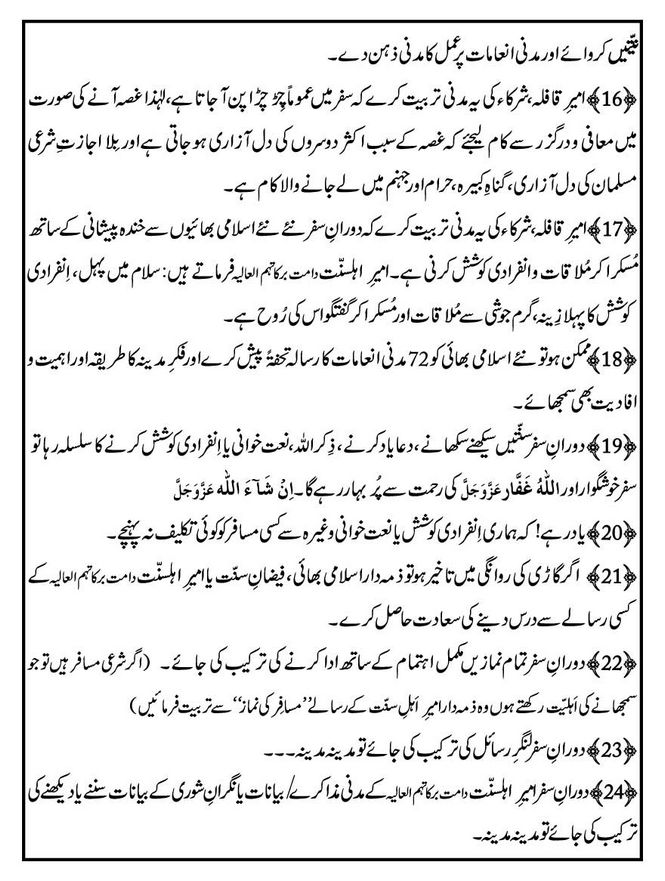 نیّتیں کروائے اور مدنی انعامات پر عمل کا مدنی ذہن دے۔
﴿16﴾امیرِ قافلہ، شرکاء کی یہ مدنی تربیت کرے کہ سفر میں عموماً چِڑچِڑاپن آجاتا ہے، لہٰذا غصہ آنے کی صورت
میں معافی ودرگزر سے کام لیجئے کہ غصہ کے سبب اکثر دوسروں کی دل آزاری ہوجاتی ہے اور بِلا اجازتِ شرعی
مسلمان کی دل آزاری، گناہِ کبیرہ، حرام اور جہنم میں لے جانے والا کام ہے۔
﴿17﴾امیرِ قافلہ، شرکاء کی یہ مدنی تربیت کرے کہ دورانِ سفر نئے نئے اسلامی بھائیوں سے خندہ پیشانی کے ساتھ
مُسکرا کر مُلاقات و انفرادی کوشش کرنی ہے۔ امیرِ اہلسنّت دامت برکاتہم العالیہ فرماتے ہیں: سلام میں پہل، اِنفرادی
کوشش کا پہلا زِینہ، گرم جوشی سے مُلاقات اور مُسکرا کر گفتگو اس کی رُوح ہے۔
﴿18﴾ممکن ہو تو نئے اسلامی بھائی کو 72 مدنی انعامات کا رسالہ تحفۃً پیش کرے اور فکرِ مدینہ کا طریقہ اور اہمیت و
افادیت بھی سمجھائے۔
﴿19﴾دورانِ سفر سنّتیں سیکھنے سکھانے، دعا یاد کرنے، ذِکرُ اللہ، نعت خوانی یا اِنفرادی کوشش کرنے کا سلسلہ رہا تو
سفر خوشگوار اور اللہُ غَفَّار عَزَّوَجَلَّ کی رحمت سے پُر بہار رہے گا۔ اِنْ شَآءَ اللہ عَزَّوَجَلَّ
﴿20﴾یاد رہے! کہ ہماری اِنفرادی کوشش یا نعت خوانی وغیرہ سے کسی مسافر کو کوئی تکلیف نہ پہنچے۔
﴿21﴾ اگر گاڑی کی روانگی میں تاخیر ہو تو ذمہ دار اسلامی بھائی، فیضانِ سنّت یا امیرِ اہلسنّت دامت برکاتہم العالیہ کے
کسی رسالے سے درس دینے کی سعادت حاصل کرے۔
﴿22﴾دورانِ سفر تمام نمازیں مکمل اہتمام کے ساتھ ادا کرنے کی ترکیب کی جائے۔ (اگر شرعی مسافر ہیں تو جو
سمجھانے کی اَہلیّت رکھتے ہوں وہ ذمہ دار امیرِ اَہلِ سنّت کے رسالے ”مسافر کی نماز“ سے تربیت فرمائیں)
﴿23﴾دورانِ سفر لنگرِ رسائل کی ترکیب کی جائے تو مدینہ مدینہ۔۔۔
﴿24﴾دورانِ سفر امیرِ اہلسنّت دامت برکاتہم العالیہ کے مدنی مذاکرے/بیانات یا نگرانِ شوریٰ کے بیانات سننے یا دیکھنے کی
ترکیب کی جائے تو مدینہ مدینہ۔